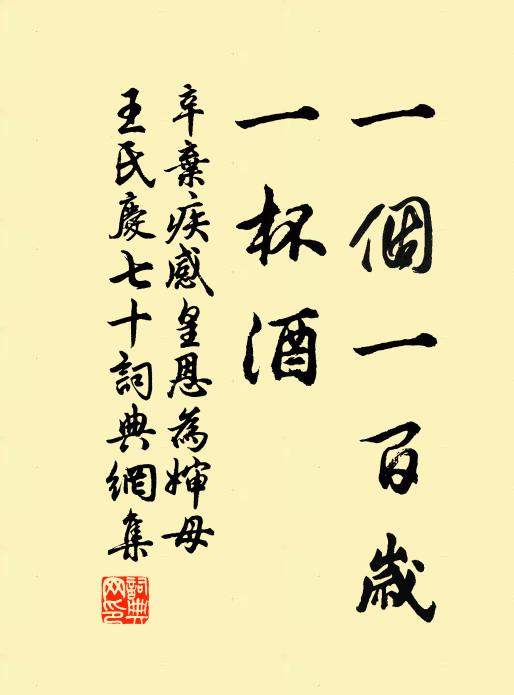 一個一百歲
一杯酒
辛棄疾感皇恩為婶母
王氏慶七十詞典網集
詞典
网印